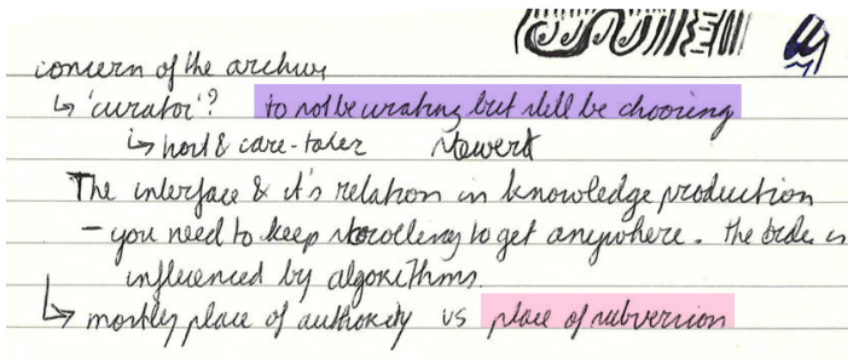 concern of the archive
↳ 'curator'? to not be curating but still be choosing
↳ host & care-taker steward
The interface & it's relation in knowledge production
- you need to keep scrolling to get anywhere. the order is
influenced by algorithms.
↳ mostly place of authority vs place of subversion